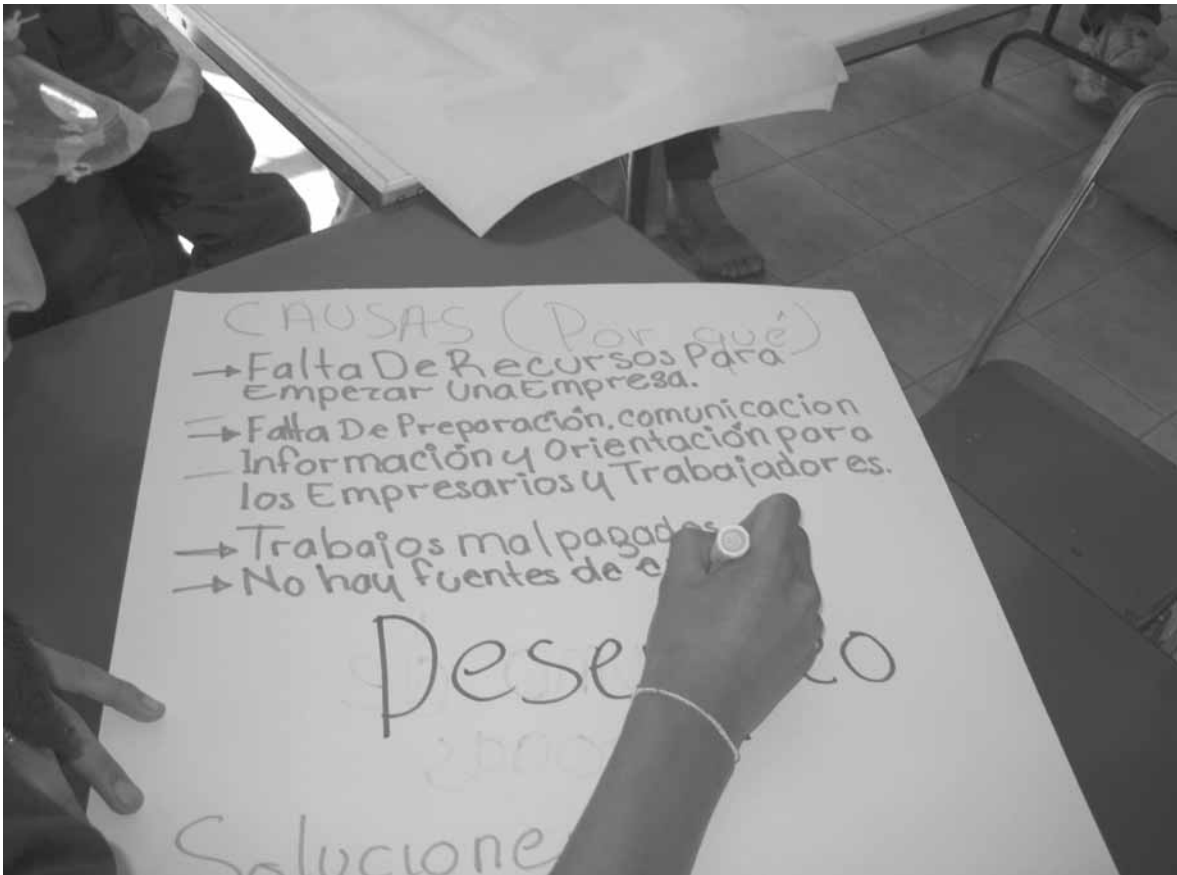 CAUSAS (Por qué)
→ Falta De Recursos Para
Empezar Una Empresa.
→ Falta De Preparación, comunicacion
Información y Orientación para
los Empresarios y Trabajadores.
→ Trabajos mal pagados
→ No hay fuentes de
Solucione